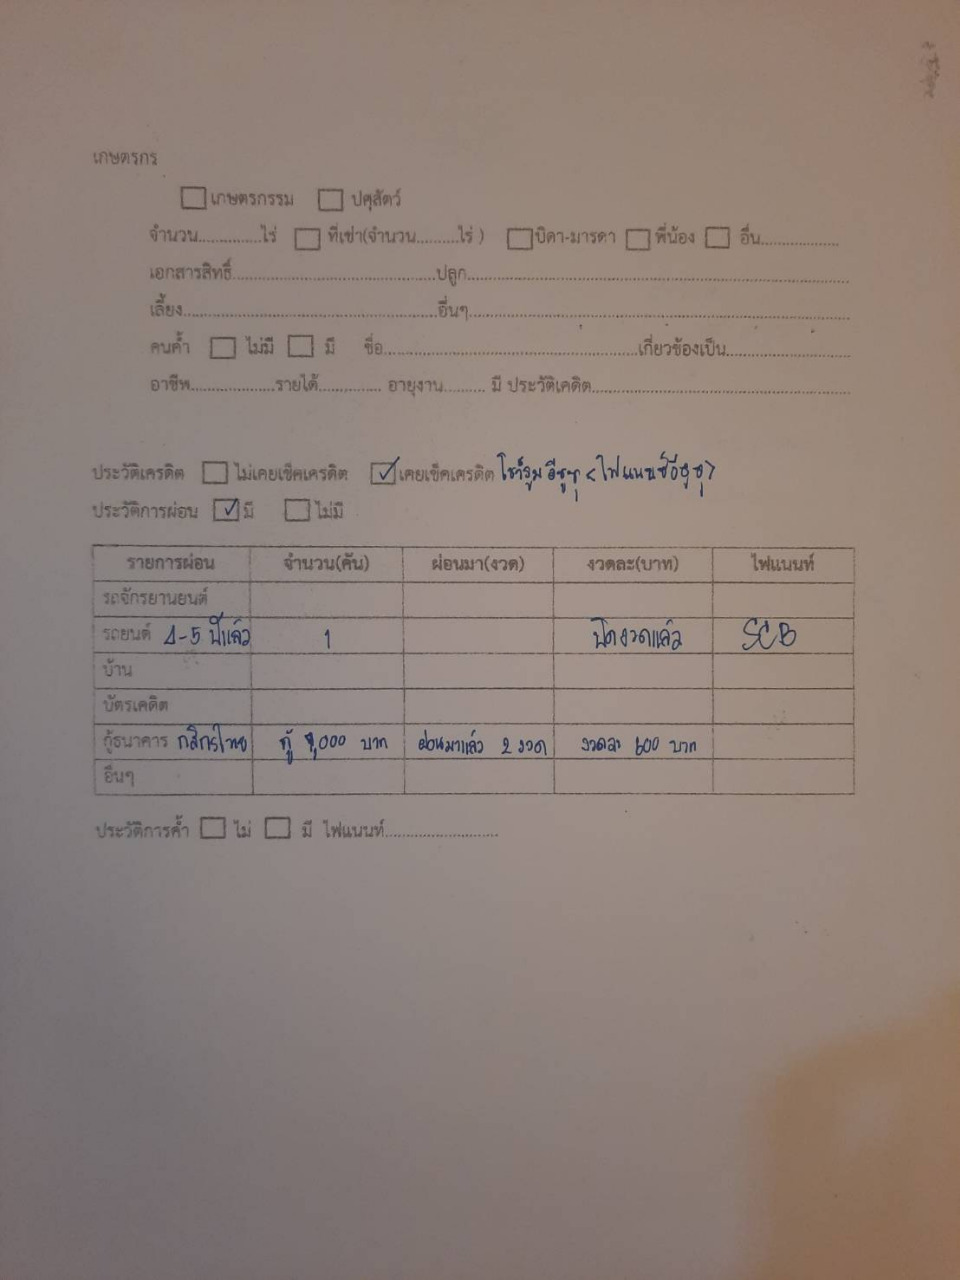 เกษตรกร
☐ เกษตรกรรม ☐ ปศุสัตว์
จำนวน..............ไร่ ☐ ที่เช่า(จำนวน.........ไร่ ) ☐ บิดา-มารดา ☐ พี่น้อง ☐ อื่น.................
เอกสารสิทธิ์............................................ปลูก....................................................................................
เลี้ยง........................................................อื่นๆ....................................................................................
คนค้ำ ☐ ไม่มี ☐ มี ชื่อ........................................................เกี่ยวข้องเป็น...........................
อาชีพ...................รายได้.............. อายุงาน......... มี ประวัติเคดิต.........................................................
ประวัติเครดิต ☐ ไม่เคยเช็คเครดิต ☑ เคยเช็คเครดิต โชว์รูม อีซูซุ <ไฟแนนซ์อีซูซุ>
ประวัติการผ่อน ☑ มี ☐ ไม่มี
รายการผ่อน จำนวน(คัน) ผ่อนมา(งวด) งวดละ(บาท) ไฟแนนท์
รถจักรยานยนต์
รถยนต์ 4-5 ปีแล้ว 1 ปิดงวดแล้ว SCB
บ้าน
บัตรเคดิต
กู้ธนาคาร กสิกรไทย กู้ ,000 บาท ผ่อนมาแล้ว 2 งวด งวดละ 600 บาท
อื่นๆ
ประวัติการค้ำ ☐ ไม่ ☐ มี ไฟแนนท์..........................